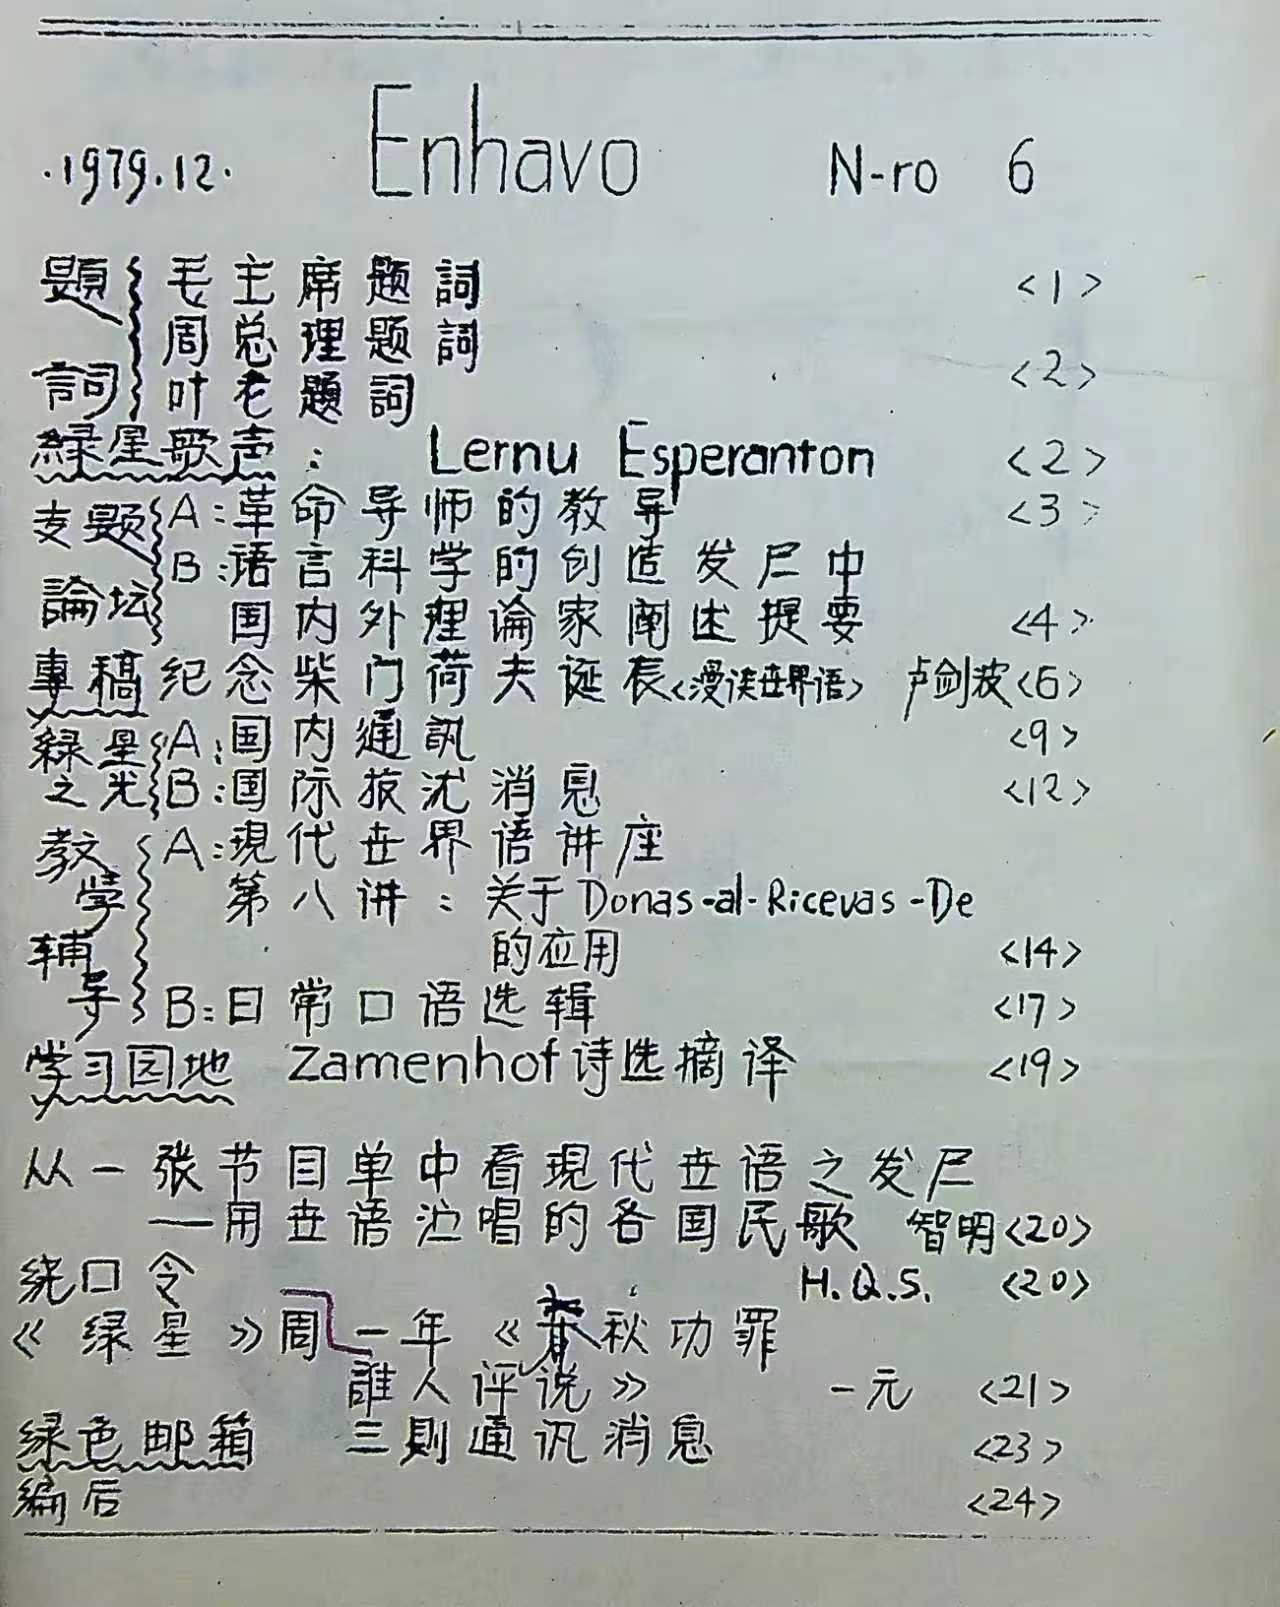 ·1979.12· Enhavo N-ro 6
題詞 毛主席题詞 <1>
周总理题詞
叶老題詞 <2>
緑星歌声: Lernu Esperanton <2>
支题論坛 A:革命导师的教导 <3>
B:语言科学的创造发尸中
国内外理论家阐述提要 <4>
專稿 纪念柴门荷夫诞辰<漫谈世界语> 卢剑波<6>
緑星之光 A:国内通訊 <9>
B:国际报沈消息 <12>
教学辅导 A:現代世界语讲座
第八讲:关于Donas-al-Ricevas-De
的应用 <14>
B:日常口语选辑 <17>
学习园地 Zamenhof诗选摘译 <19>
从一张节目单中看現代世语之发尸
——用世语泣唱的各国民歌 智明<20>
绕口令 H.Q.S. <20>
《绿星》周一年《春秋功罪
誰人评说》 一元 <21>
绿色邮箱 三則通讯消息 <23>
编后 <24>